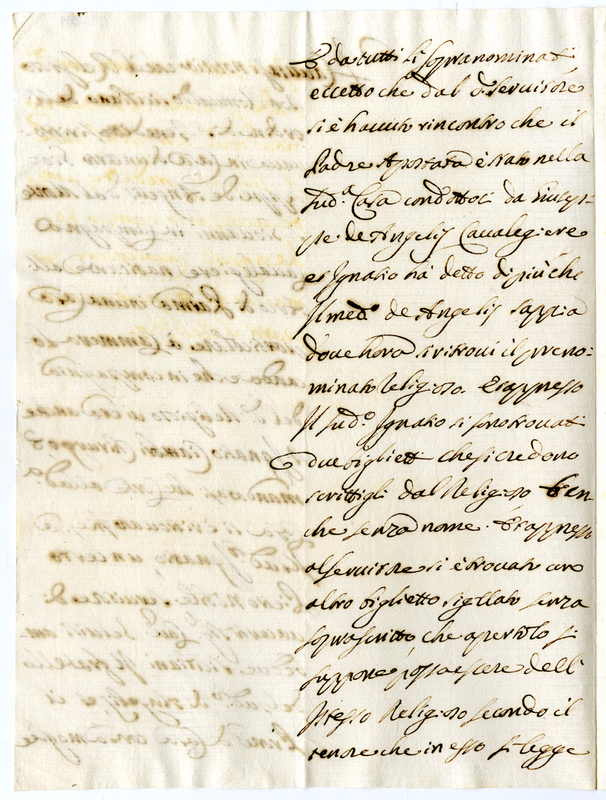 E da tutti li sopranominati
eccetto che dal d. servitore
si è havuto rincontro che il
Padre Apostata è stato nella
sud.a Casa condottoci da Giusep-
pe de Angelis Cavalegiere
et Ignatio hà detto di più che
il med.o de Angelis sappia
dove hora si ritrovi il preno-
minato Religioso. E appresso
il sud.o Ignatio si sono trovati
due biglietti che si credono
scrittigli dal Religioso ben
che senza nome. E appresso
al servitore si è trovato uno
altro biglietto sigillato senza
soprascritto che apertolo si
suppone possa essere dell
istesso Religioso secondo il
tenore che in esso si legge